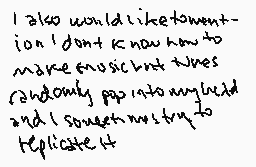 I also would like to ment-
ion I dont know how to
make music but tunes
randomly pop into my head
and I sometimes try to
replicate it